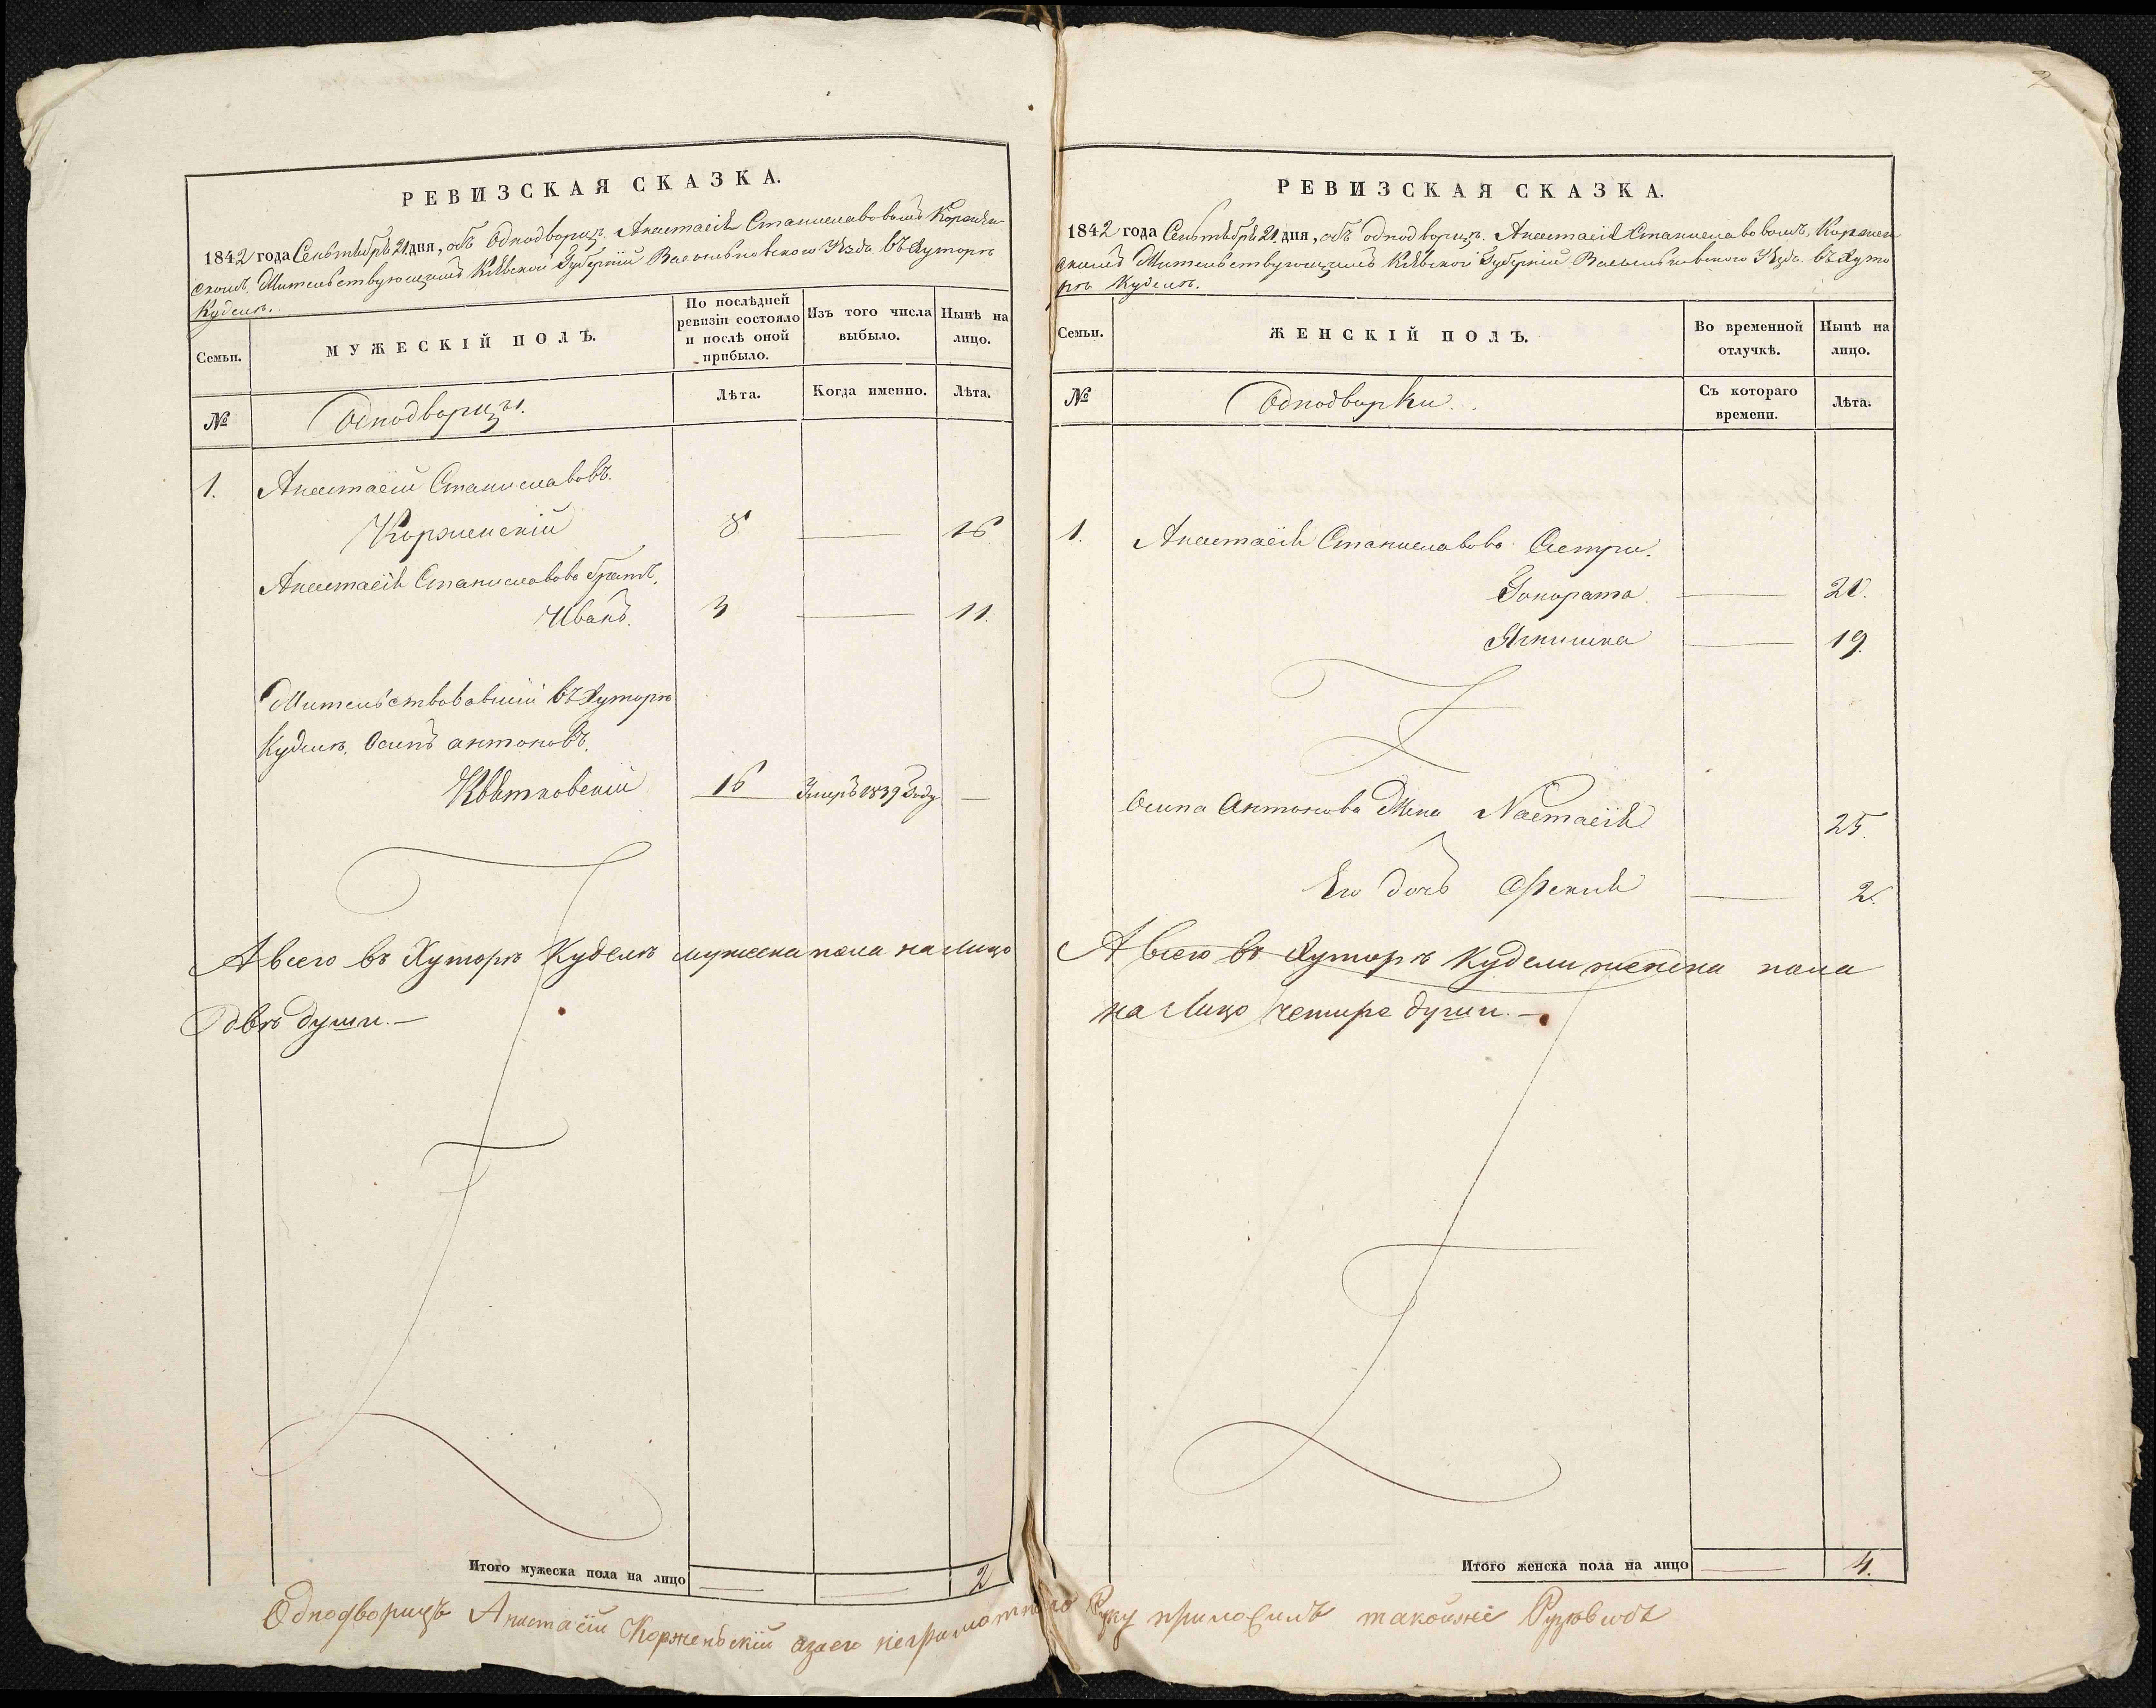 РЕВИЗСКАЯ СКАЗКА.
1842 года Сеньтебря 21 дня, объ Однодворцѣ Анастасіѣ Станиславовомъ Коржен-
скомъ Жительствующимъ Кіевской Губерніи Васильковского Уезда въ Хуторѣ
Куделѣ.
Семьи.
МУЖЕСКІЙ ПОЛЪ.
По послѣдней ревизіи состояло и послѣ оной прибыло.
Изъ того числа выбыло.
Нынѣ на лицо.
№
Однодворцы.
Лѣта.
Когда именно.
Лѣта.
1. Анастасій Станиславовъ.
Корженскій 8 — 16
Анастасія Станиславова братъ,
Иванъ. 3 — 11.
Жительствовавшій въ Хуторѣ
Куделѣ, Осипъ антоновъ.
Квятковскій 16 Умеръ 1839 Году —
А всего въ Хуторѣ Куделѣ мужеска пола на лицо
двѣ души. —
Итого мужеска пола на лицо — — 2
Однодворицъ Анастасій Корженьскій азаего неграмотного
2
РЕВИЗСКАЯ СКАЗКА.
1842 года Сеньтебря 21 дня, объ однодворцѣ Анастасіѣ Станиславовомъ, Коржен
скимъ Жительствующимъ Кіевской Губерніи Васильковского Уезда въ Хуто
рѣ Куделѣ.
Семьи.
ЖЕНСКІЙ ПОЛЪ.
Во временной отлучкѣ.
Нынѣ на лицо.
№
Однодворки.
Съ котораго времени.
Лѣта.
1. Анастасія Станиславова Сестри.
Гонората — 21.
Ягнишка — 19.
Осипа Антонова Жена Настасія 25.
Его дочь Феклія — 2.
А всего въ Хуторѣ Кудели женска пола
на лицо четире души. —
Итого женска пола на лицо — 4.
Руку приложилъ такойже